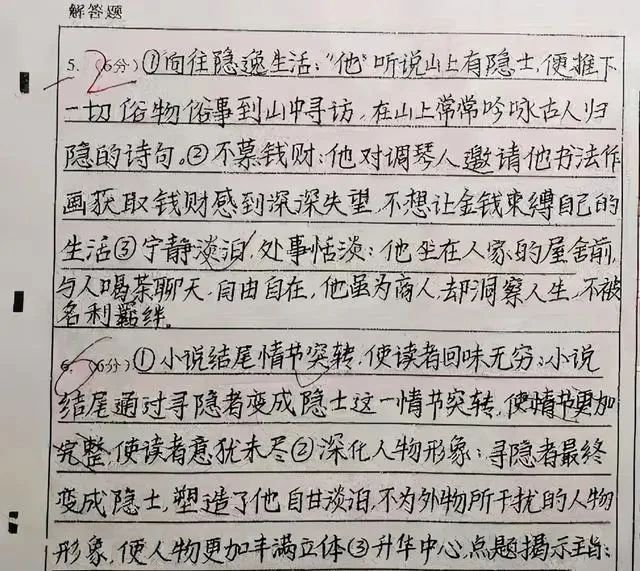 解答题
5. 2 (6分) ①向往隐逸生活:"他"听说山上有隐士,便推下
一切俗物俗事到山中寻访,在山上常常吟咏古人归
隐的诗句。②不慕钱财:他对调琴人邀请他书法作
画获取钱财感到深深失望,不想让金钱束缚自己的
生活③宁静淡泊,处事恬淡:他坐在人家的屋舍前,
与人喝茶聊天,自由自在,他虽为商人,却洞察人生,不被
名利羁绊。
6. (6分) ①小说结尾情节突转,使读者回味无穷:小说
结尾通过寻隐者变成隐士这一情节突转,使情节更加
完整,使读者意犹未尽②深化人物形象:寻隐者最终
变成隐士,塑造了他自甘淡泊,不为外物所干扰的人物
形象,使人物更加丰满立体③升华中心,点题揭示主旨: